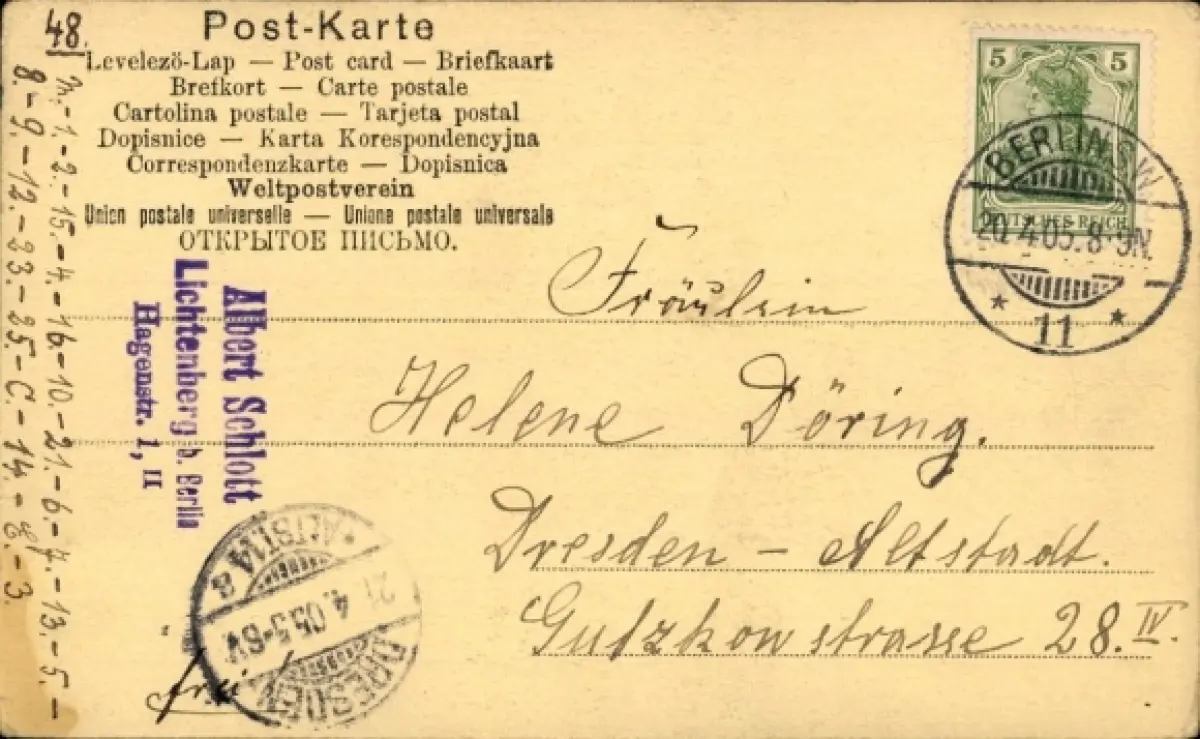 48.
Post-Karte
Levelezö-Lap — Post card — Briefkaart
Brefkort — Carte postale
Cartolina postale — Tarjeta postal
Dopisnice — Karta Korespondencyjna
Correspondenzkarte — Dopisnica
Weltpostverein
Union postale universelle — Unione postale universale
ОТКРЫТОЕ ПИСЬМО.
5 5
DEUTSCHES REICH
BERLIN S.W.
20. 4.05. 8-9N.
* 11 *
Fräulein
Helene Döring.
Dresden - Altstadt.
Gutzkowstrasse 28. IV.
Albert Schlott
Lichtenberg b. Berlin
Hagenstr. 1, II
DRESDEN
21. 4.05. 5-6V
*ALTST.14 g
frei
1.-2.-15.-4.-16.-10.-21.-6.-7.-13.-5.-
8.-9.-12.-33.-35.-C.-14.-E.-3.